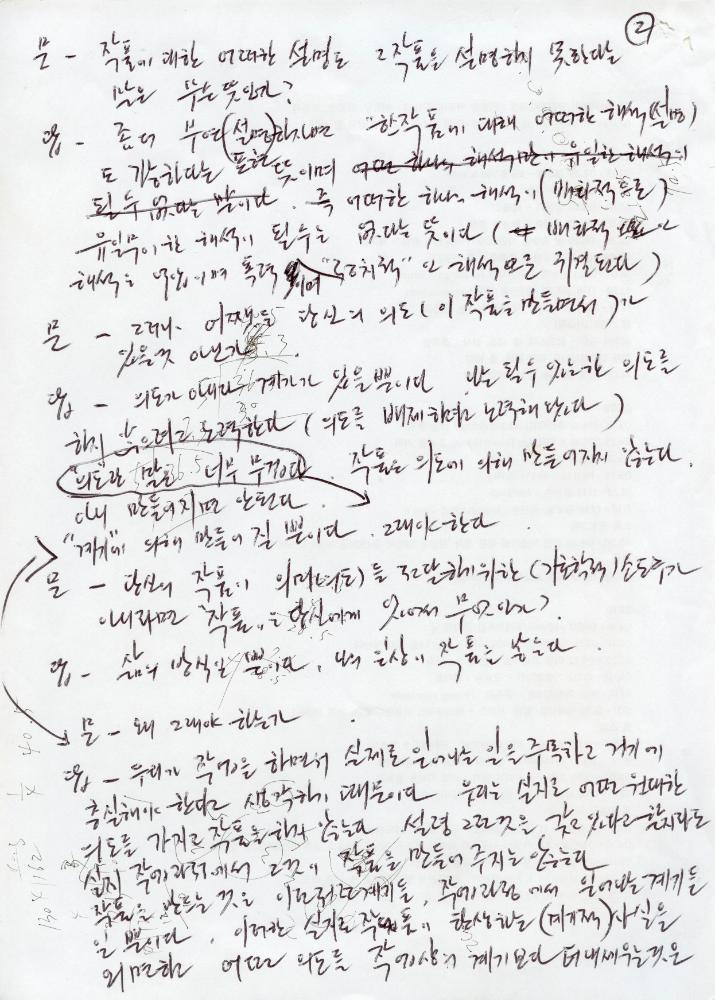 ②
문 - 작품에 대한 어떠한 설명도 그 작품을 설명하지 못한다는
말은 무슨 뜻인가?
답 - 좀더 부연(설명)하자면 "한 작품에 대해 어떠한 해석(설명)
도 가능하다는 표현 뜻이며 어떤 하나의 해석만이 유일한 해석이
될 수 없다는 말이다. 즉 어떠한 하나의 해석이 (배타적으로)
유일무이한 해석이 될 수는 없다는 뜻이다 ( 배타적인
해석은 억압이며 폭력이며 "국수적" 인 해석으로 귀결된다)
문 - 그러나 어쨌든 당신의 의도(이 작품을 만들면서)가
있을 것 아닌가
답 - 의도가 아니라 계기가 있을 뿐이다 나는 될 수 있는 한 의도를
하지 않으려고 노력한다 (의도를 배제하려고 노력해 왔다)
"의도란 말은 너무 무겁다. 작품은 의도에 의해 만들어지지 않는다.
아니 만들어지면 안된다.
"계기"에 의해 만들어 질 뿐이다. 그래야 한다.
문 - 당신의 작품이 의미(의도)를 전달하기 위한 (기호학적) 소도구가
아니라면 "작품"은 당신에게 있어서 무엇인가?
답 - 삶의 방식일 뿐이다. 나의 일상이 작품을 낳는다.
문 - 왜 그래야 하는가
답 - 우리가 작업을 하면서 실제로 일어나는 일을 주목하고 거기에
충실해야 한다고 생각하기 때문이다 우리는 실지로 어떤 원대한
의도를 가지고 작품을 하지 않는다 설령 그런것을 갖고 있다고 할지라도
실지 작업과정에서 그것이 작품을 만들어 주지는 않는다
작품을 만드는 것은 이런저런 계기들, 작업과정에서 일어나는 계기들
일 뿐이다. 이러한 실지로 작품이 탄생하는 (계기적) 사실을
외면하고 어떤 의도를 작업상의 계기보다 더 내세우는 것은